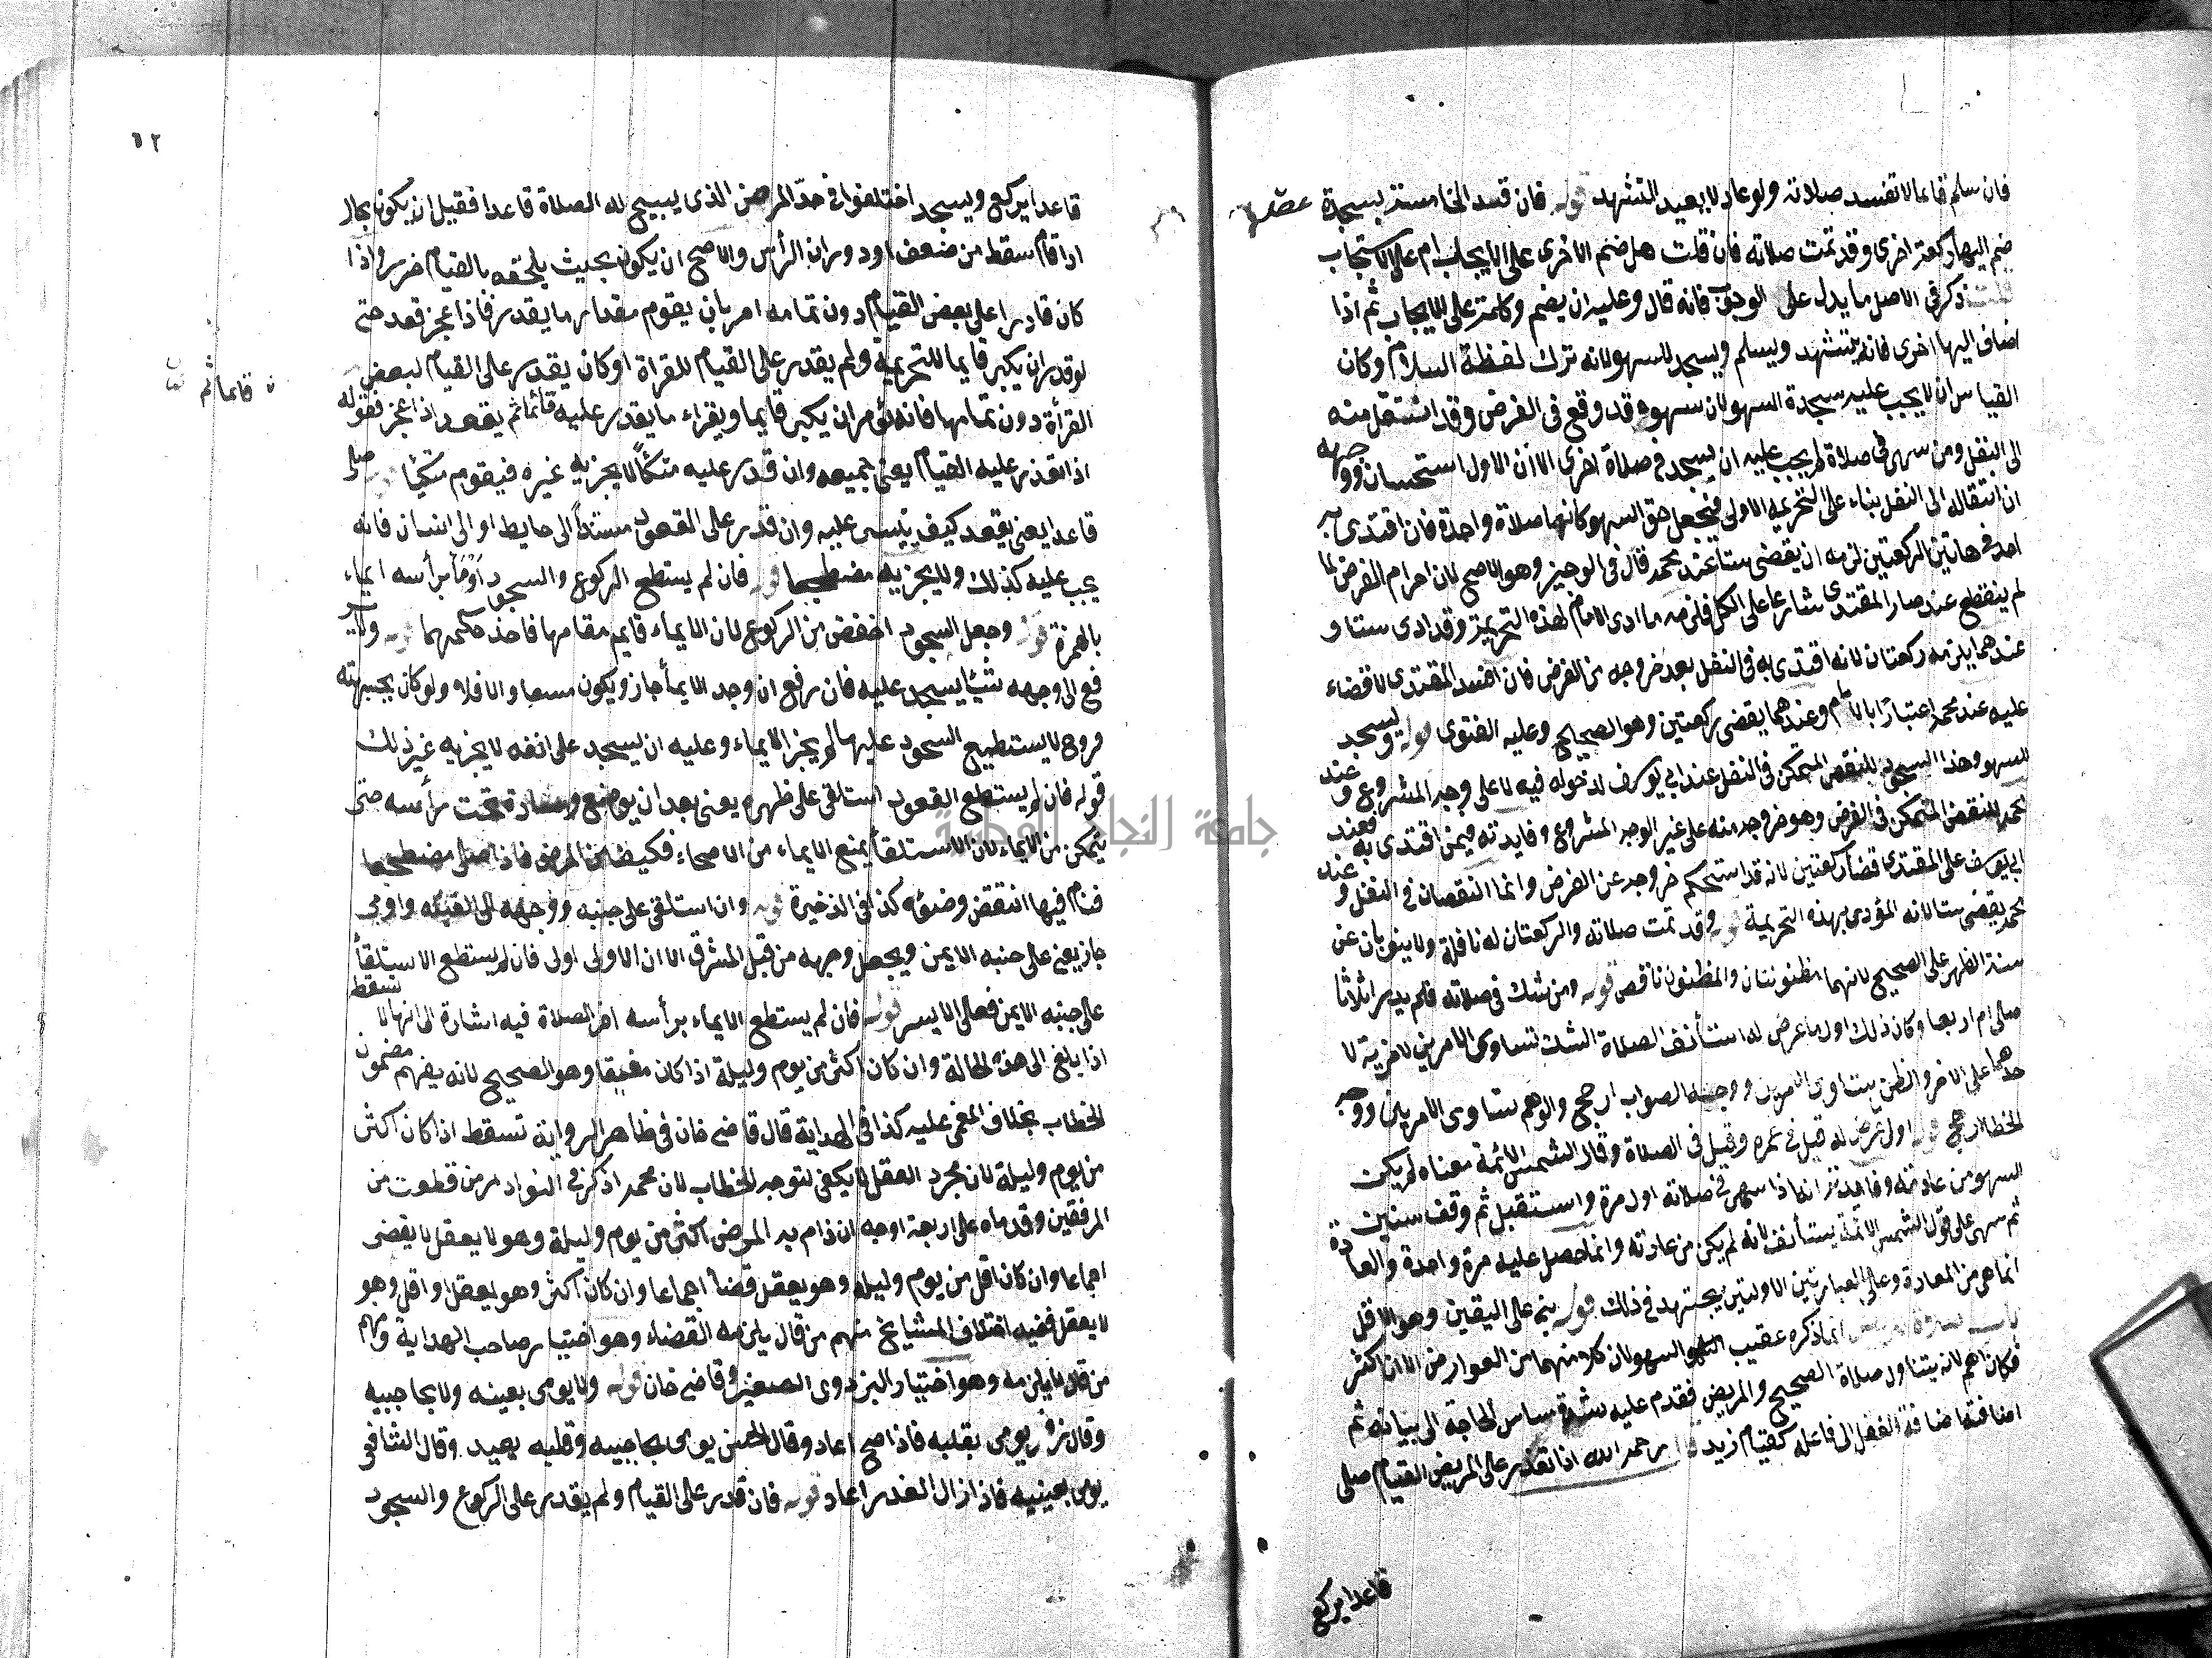 فان سلم قائما لا تفسد صلاته ولو عاد لا يعيد التشهد قوله فان قيد الخامسة بسجدة
ضم اليها ركعة اخرى وقد تمت صلاته فان قلت هل ضم الاخرى على الايجاب ام على الاستحباب
قلت ذكر فى الاصل ما يدل على الوجوب فانه قال وعليه ان يضم وكلمة على للايجاب ثم اذا
اضاف اليها اخرى فانه يتشهد ويسلم ويسجد للسهو لانه ترك لفظة السلام وكان
القياس ان لا يجب عليه سجدة السهو لان سهوه قد وقع فى الفرض وقد انتقل منه
الى النفل ومن سهى فى صلاة لم يجب عليه ان يسجد فى صلاة اخرى الا ان الاول استحسان ووجهه
ان انتقاله الى النفل بناء على التحريمة الاولى فيجعل حق السهو كانهما صلاة واحدة فان اقتدى به
احد فى هاتين الركعتين لزمه ان يقضى ستا عند محمد قال فى الوجيز وهو الاصح لان احرام الفرض لما
لم ينقطع عنده صار المقتدى شارعا على الكل فلزمه ما ادى الامام لهذه التحريمة وقد ادى ستا و
عندهما يلزمه ركعتان لانه اقتدى به فى النفل بعد خروجه من الفرض فان افسد المقتدى لا قضاء
عليه عند محمد اعتبارا بالامام وعندهما يقضى ركعتين وهو الصحيح وعليه الفتوى قوله ويسجد
للسهو وهذا السجود للنقص المتمكن فى النفل عند ابي يوسف لدخوله فيه لا على وجه المشروع وعند
محمد للنقص المتمكن فى الفرض وهو خروجه منه على غير الوجه المشروع وفايدته فيمن اقتدى به فعند
ابي يوسف على المقتدى قضاء ركعتين لانه قد استحكم خروجه عن الفرض وانما النقصان فى النفل وعند
محمد يقضى ستا لانه المؤدى بهذه التحريمة قوله وقد تمت صلاته والركعتان له نافلة ولا ينوبان عن
سنة الظهر على الصحيح لانهما مظنونتان والمظنون ناقص قوله ومن شك فى صلاته فلم يدر اثلاثا
صلى ام اربعا وكان ذلك اول ما عرض له استأنف الصلاة الشك تساوى الامرين لا مزية لا
حدهما على الاخر والظن تساوى الامرين ووجهه الصواب ارجح والوهم تساوى الامرين ووجه
الخطا ارجح قوله اول عرض له قيل فى عمره وقيل فى الصلاة وقال الشمس الائمة معناه لم يكن
السهو من عادته وفائدته انه اذا سهى فى صلاته اول مرة واستقبل ثم وقف سنين
ثم سهى على قول الشمس الائمة يستأنف لانه لم يكن من عادته وانما حصل عليه مرة واحدة والعادة
انما هى من المعادة وعلى العبارتين الاولتين يجتهد فى ذلك قوله بنى على اليقين وهو الاقل
باب صلاة المريض انما ذكره عقيب السهو لان كلا منهما من العوارض الا ان اكثر
فكان اهم لانه يتناول صلاة الصحيح والمريض فقدم عليه شدة مساس الحاجة الى بيانه ثم
اضافته اضافة الفعل الى فاعله كقيام زيد قال رحمه الله اذا تعذر على المريض القيام صلى
قاعدا يركع
٦٢
قاعدا يركع ويسجد اختلفوا فى حدّ المرض الذى يبيح له الصلاة قاعدا فقيل ان يكون بحال
اذا قام سقط من ضعف او دوران الرأس والاصح ان يكون بحيث يلحقه بالقيام ضرر واذا
كان قادرا على بعض القيام دون تمامه امر بان يقوم مقدار ما يقدر فاذا عجز قعد حتى
لو قدر ان يكبر قايما للتحريمة ولم يقدر على القيام للقراة او كان يقدر على القيام لبعض
القرأة دون تمامها فانه يؤمر ان يكبر قايما ويقراء ما يقدر عليه قائما ثم يقعد اذا عجز فقوله
اذا تعذر عليه القيام يعنى جميعه وان قدر عليه متكأ لا يجزيه غيره فيقوم متكيا قوله صلى
قاعدا يعنى يقعد كيف تيسر عليه وان قدر على القعود مستندا الى حايط او الى انسان فانه
يجب عليه كذلك ولا يجزيه مضطجعا قوله فان لم يستطع الركوع والسجود اومأ برأسه ايماء
بالهمزة قوله وجعل السجود اخفض من الركوع لان الايماء قايم مقامها فاخذ حكمهما قوله ولا ير
فع الى وجهه شيئا يسجد عليه فان رفع ان وجد الايماء جاز ويكون مسيا والا فلا ولو كان بجبهته
قروح لا يستطيع السجود عليها لم يجز الايماء وعليه ان يسجد على انفه لا يجزيه غير ذلك
قوله فان لم يستطع القعود استلقى على ظهره يعنى بعد ان يوضع وسادة تحت رأسه حتى
يتمكن من الايماء لان الاستلقأ يمنع الايماء من الاصحاء فكيف من المرض فاذا صلى مضطجعا
فنام فيها انتقض وضوءه كذا فى الذخيرة قوله وان استلقى على جنبه ووجهه الى القبلة واومى
جاز يعنى على جنبه الايمن ويجعل وجهه من قبل المشرق الا ان الاولى اولى فان لم يستطع الاستلقأ
على جنبه الايمن فعلى الايسر قوله فان لم يستطع الايماء برأسه اخر الصلاة فيه اشارة الى انها لا تسقط
اذا بلغ الى هذه الحالة وان كان اكثر من يوم وليلة اذا كان مفيقا وهو الصحيح لانه يفهم مضمون
الخطاب بخلاف المغمى عليه كذا فى الهداية قال قاضى خان فى ظاهر الرواية تسقط اذا كان اكثر
من يوم وليلة لان مجرد العقل لا يكفى لتوجه الخطاب لان محمدا ذكر فى النوادر من قطعت من
المرفقين وقدماه على اربعة اوجه ان دام به المرض اكثر من يوم وليلة وهو لا يعقل لا يقضى
اجماعا وان كان اقل من يوم وليلة وهو يعقل قضا اجماعا وان كان اكثر وهو يعقل او اقل وهو
لا يعقل ففيه اختلاف المشايخ منهم من قال يلزمه القضاء وهو اختيار صاحب الهداية ومنهم
من قال لا يلزمه وهو اختيار البزدوى الصغير وقاضى خان قوله ولا يومى بعينه ولا بحاجبيه
وقال زفر يومى بقلبه فاذا صح اعاد وقال الحسن يومى بحاجبيه وقلبه يعيد وقال الشافعى
يومى بعينيه فاذا زال العذر اعاد قوله فان قدر على القيام ولم يقدر على الركوع والسجود
قائما ثم
جامعة النجاح الوطنية